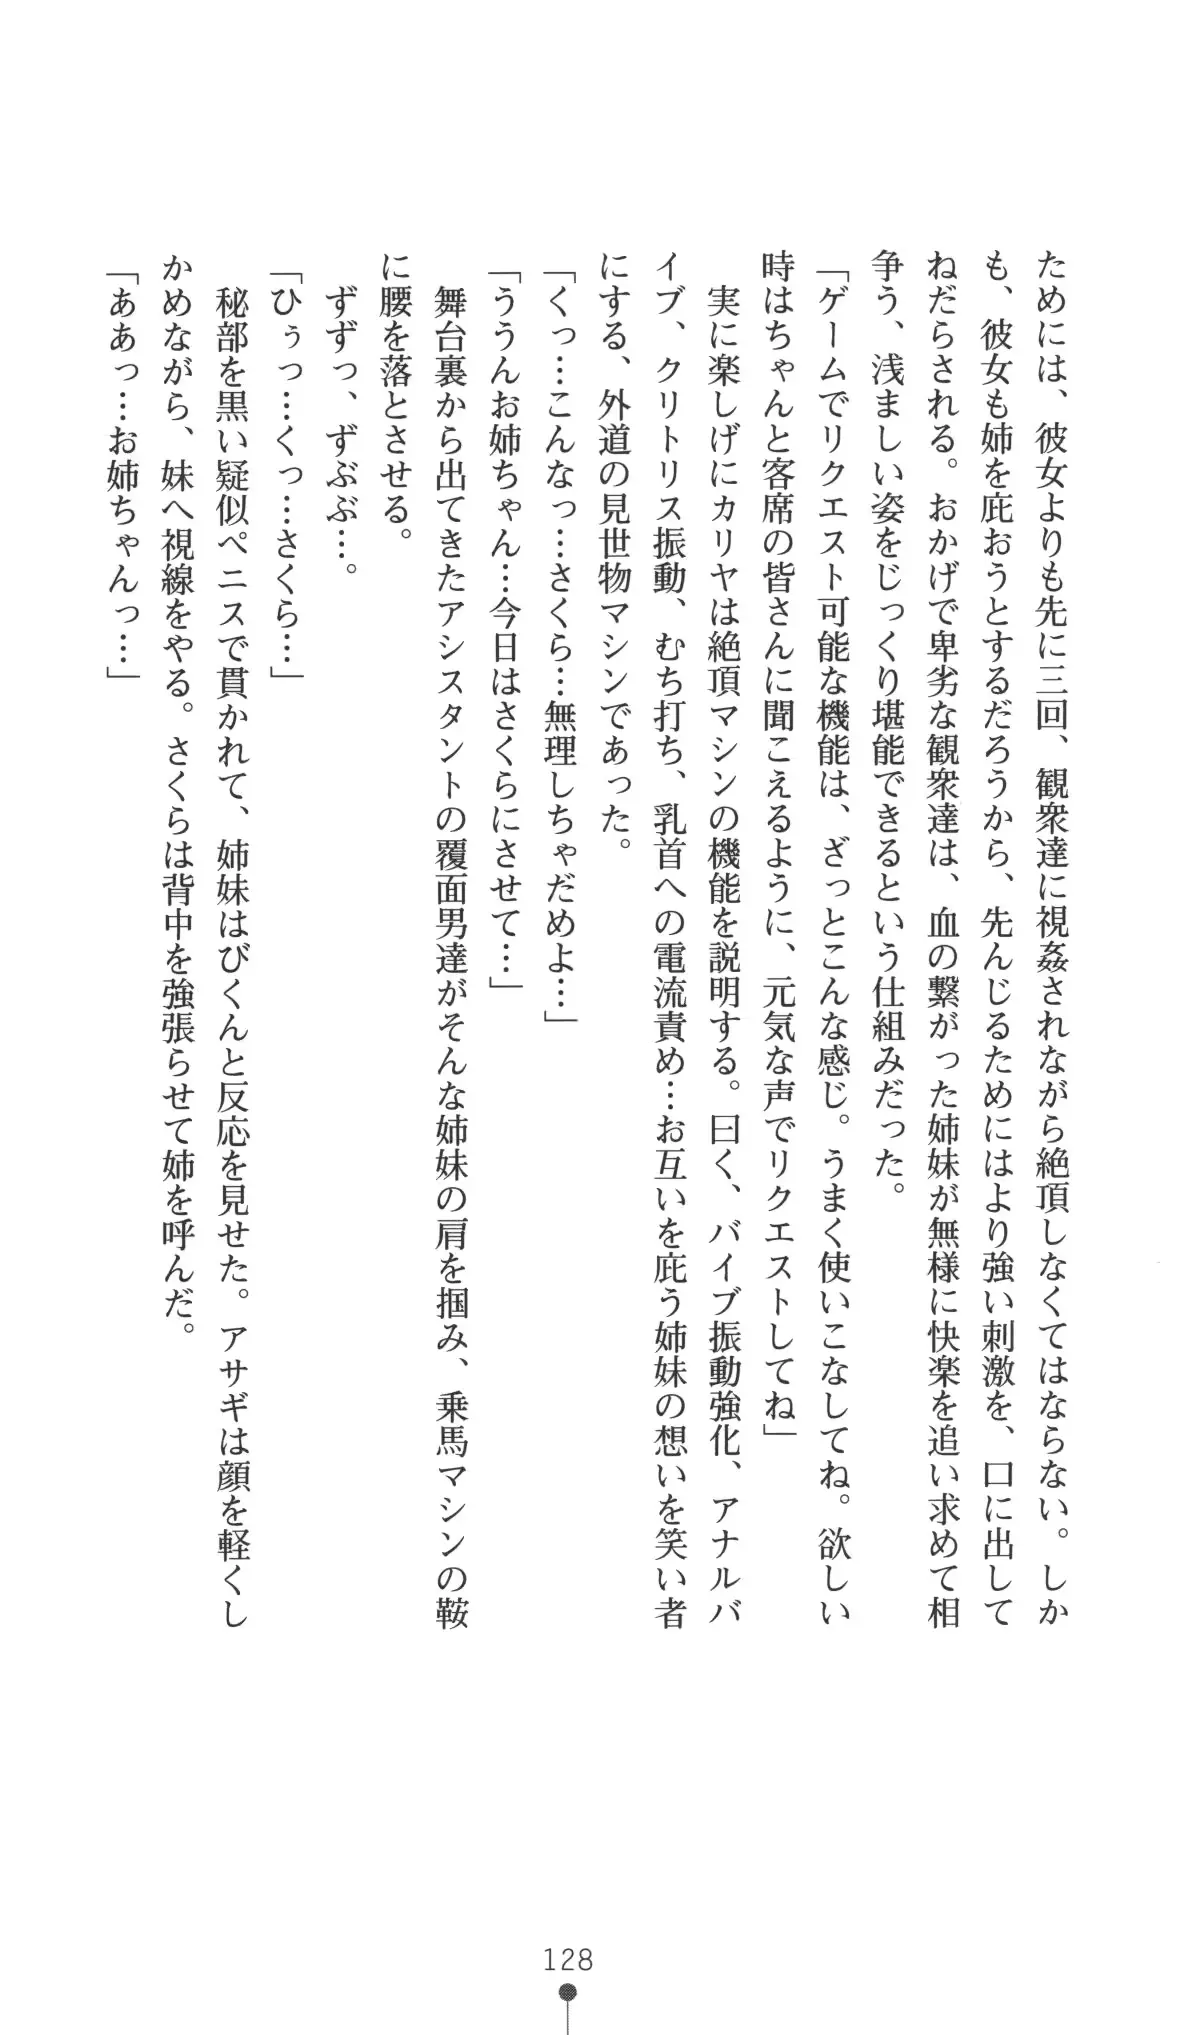 ためには、彼女よりも先に三回、観衆達に視姦されながら絶頂しなくてはならない。しか
も、彼女も姉を庇おうとするだろうから、先んじるためにはより強い刺激を、口に出して
ねだらされる。おかげで卑劣な観衆達は、血の繋がった姉妹が無様に快楽を追い求めて相
争う、浅ましい姿をじっくり堪能できるという仕組みだった。
「ゲームでリクエスト可能な機能は、ざっとこんな感じ。うまく使いこなしてね。欲しい
時はちゃんと客席の皆さんに聞こえるように、元気な声でリクエストしてね」
実に楽しげにカリヤは絶頂マシンの機能を説明する。曰く、バイブ振動強化、アナルバ
イブ、クリトリス振動、むち打ち、乳首への電流責め…お互いを庇う姉妹の想いを笑い者
にする、外道の見世物マシンであった。
「くっ…こんなっ…さくら…無理しちゃだめよ…」
「ううんお姉ちゃん…今日はさくらにさせて…」
舞台裏から出てきたアシスタントの覆面男達がそんな姉妹の肩を掴み、乗馬マシンの鞍
に腰を落とさせる。
ずずっ、ずぶぶ…。
「ひぅっ…くっ…さくら…」
秘部を黒い疑似ペニスで貫かれて、姉妹はびくんと反応を見せた。アサギは顔を軽くし
かめながら、妹へ視線をやる。さくらは背中を強張らせて姉を呼んだ。
「ああっ…お姉ちゃんっ…」
128